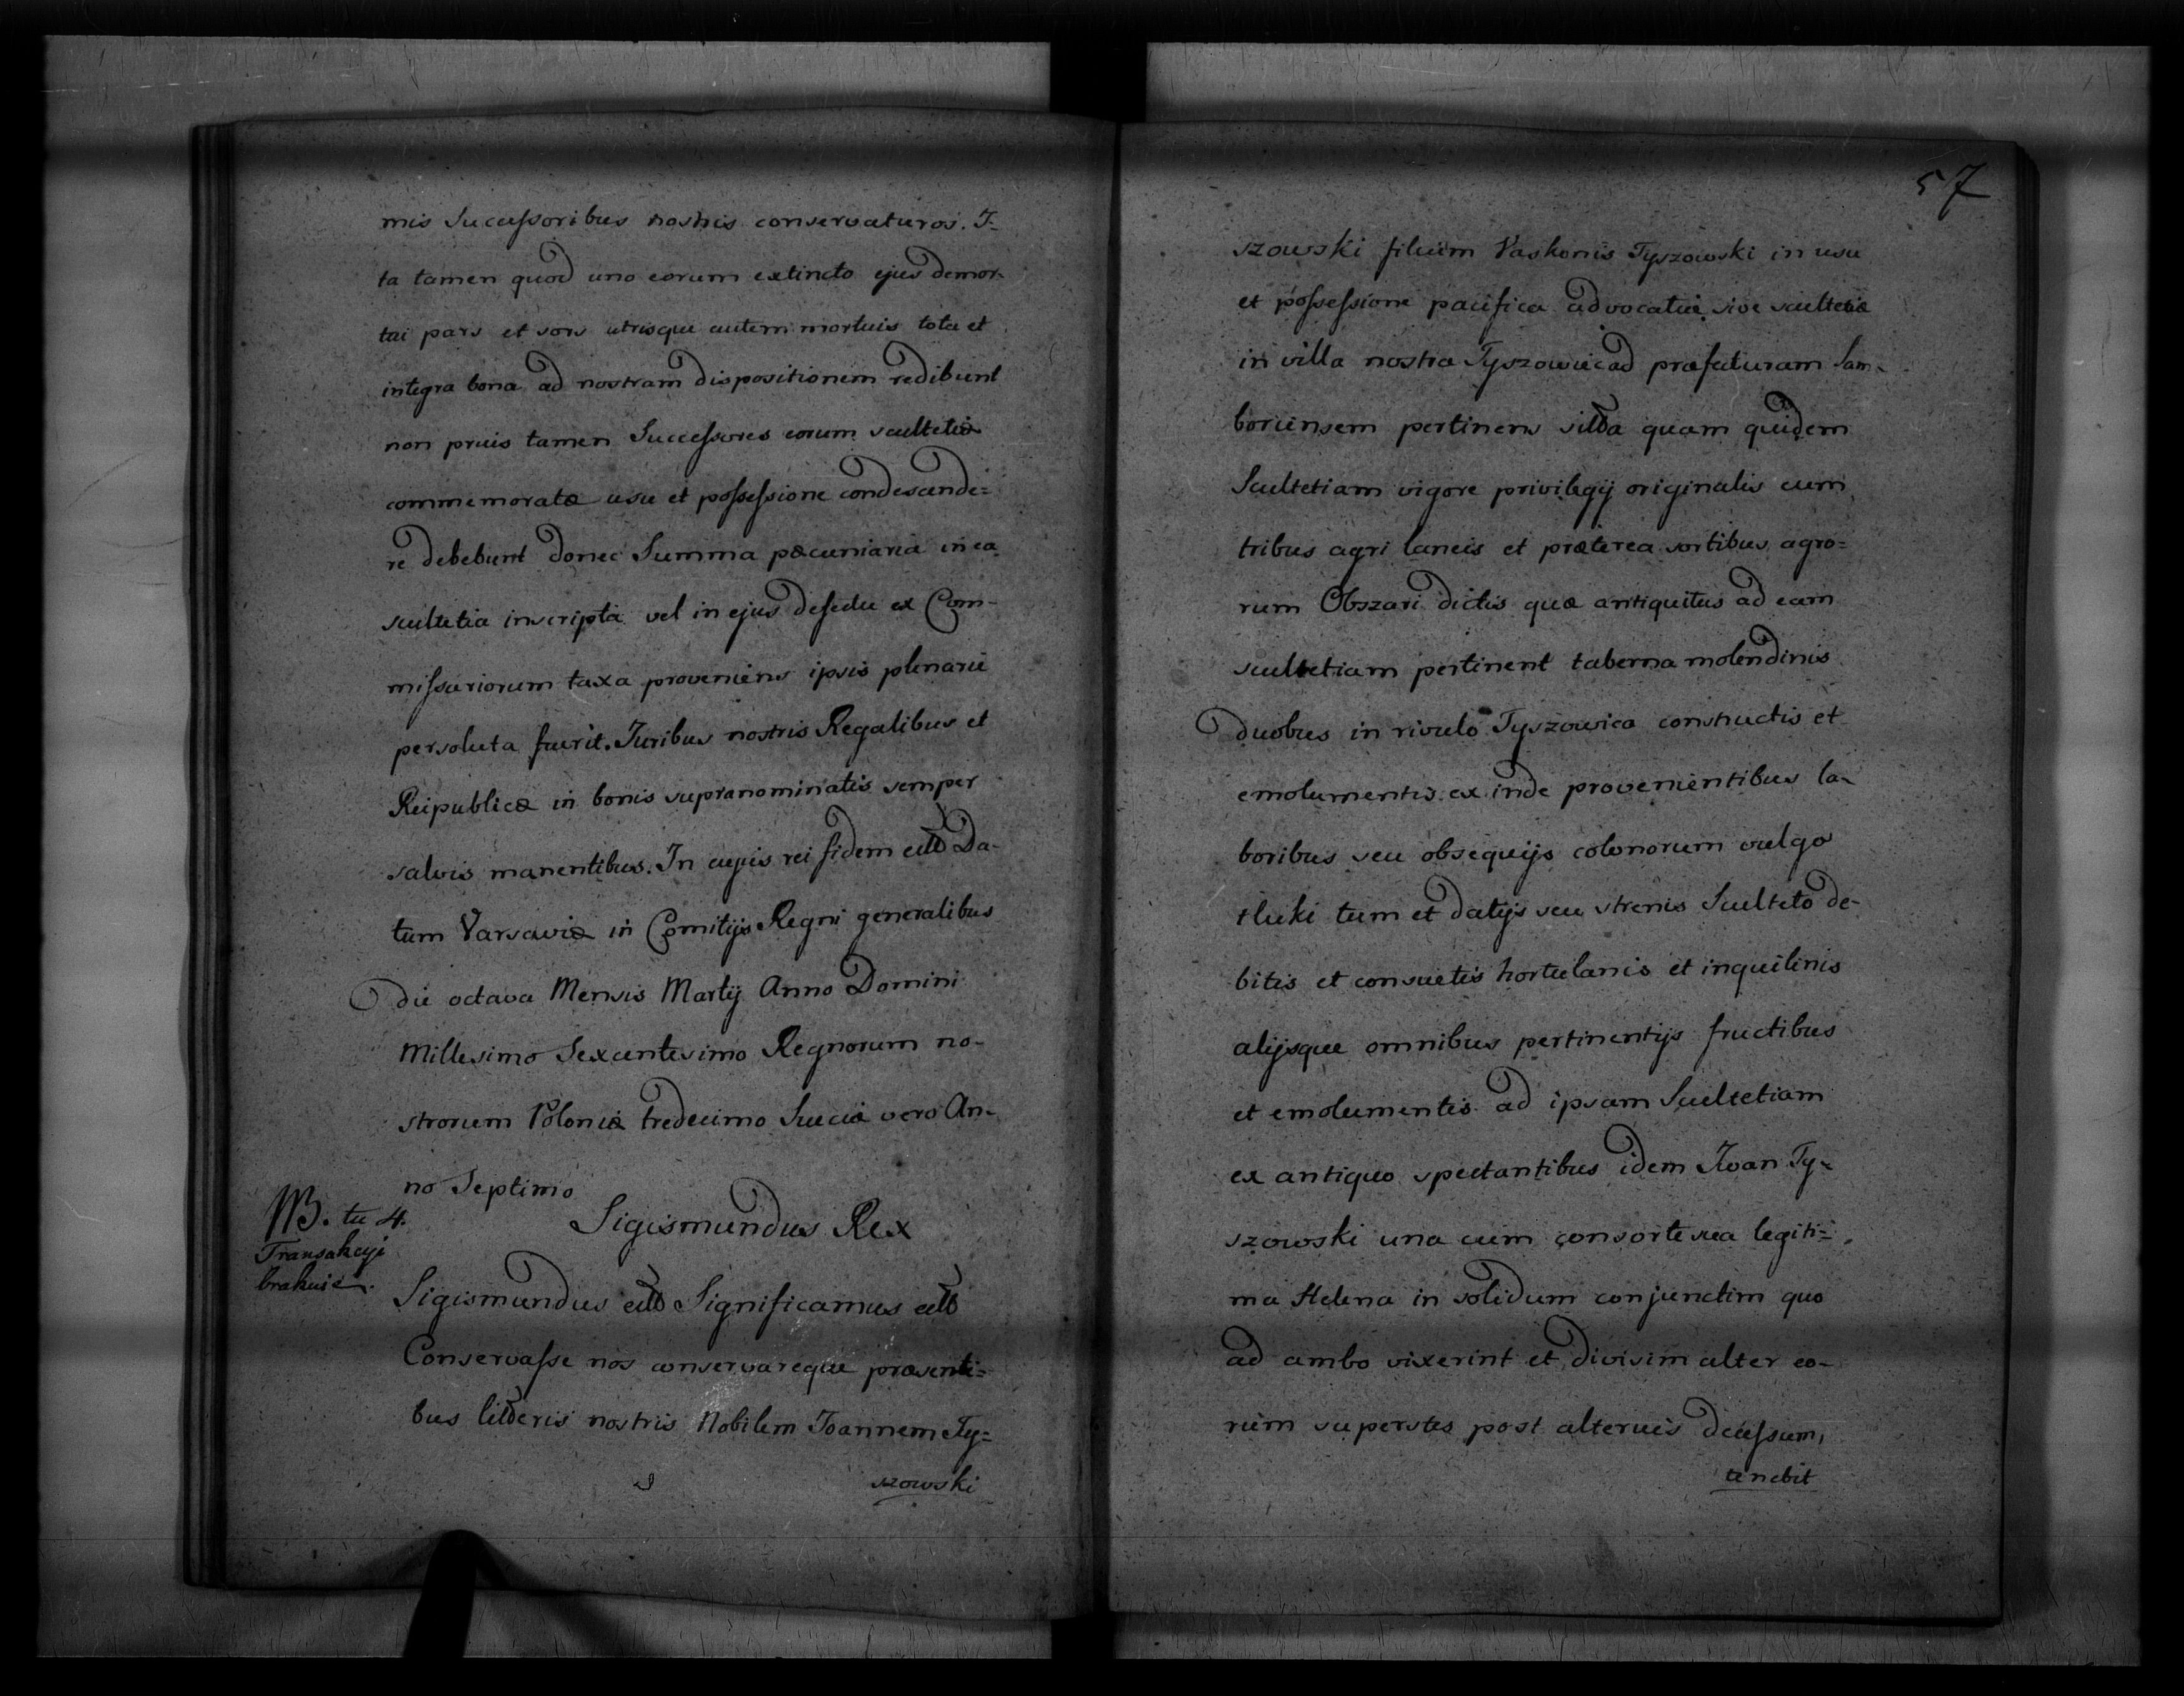 mis Successoribus nostris conservaturos. I-
ta tamen quod uno eorum extincto ejus demor-
tui pars et sors utrisque autem mortuis tota et
integra bona ad nostram dispositionem redibunt
non prius tamen Successores eorum scultetiæ
commemoratæ usu et possessione condescende=
re debebunt donec Summa pæcuniaria in ea
scultetia inscripta vel in ejus defectu ex Com-
missariorum taxa proveniens ipsis plenarie
persoluta fuerit. Juribus nostris Regalibus et
Reipublicæ in bonis supranominatis semper
salvis manentibus. In cujus rei fidem etto Da-
tum Varsaviæ in Comitijs Regni generalibus
die octava Mensis Martij Anno Domini
Millesimo Sexcentesimo Regnorum no-
strorum Poloniæ tredecimo Sueciæ vero An-
no Septimo
Sigismundus Rex
NB. tu 4.
Transakcyi
brakuie.
Sigismundus etto Significamus etto
Conservasse nos conservareque præsenti=
bus litteris nostris Nobilem Joannem Ty=
szowski
57
szowski filium Vaskonis Tyszowski in usu
et possessione pacifica advocatiæ sive scultetiæ
in villa nostra Tyszowic ad præfecturam Sam-
boriensem pertinens sitta quam quidem
Scultetiam vigore privilegij originalis cum
tribus agri laneis et præterea sortibus agro=
rum Obszari dictis quæ antiquitus ad eam
scultetiam pertinent taberna molendinis
duobus in rivulo Tyszowica constructis et
emolumentis ex inde provenientibus la-
boribus seu obsequijs colonorum vulgo
tłuki tum et datijs seu strenis Sculteto de-
bitis et consuetis hortulanis et inquilinis
alijsque omnibus pertinentijs fructibus
et emolumentis ad ipsam Scultetiam
ex antiquo spectantibus idem Iwan Ty=
szowski una cum consorte sua legiti=
ma Helena in solidum conjunctim quo
ad ambo vixerint et divisim alter eo-
rum superstes post alterius decessum,
tenebit